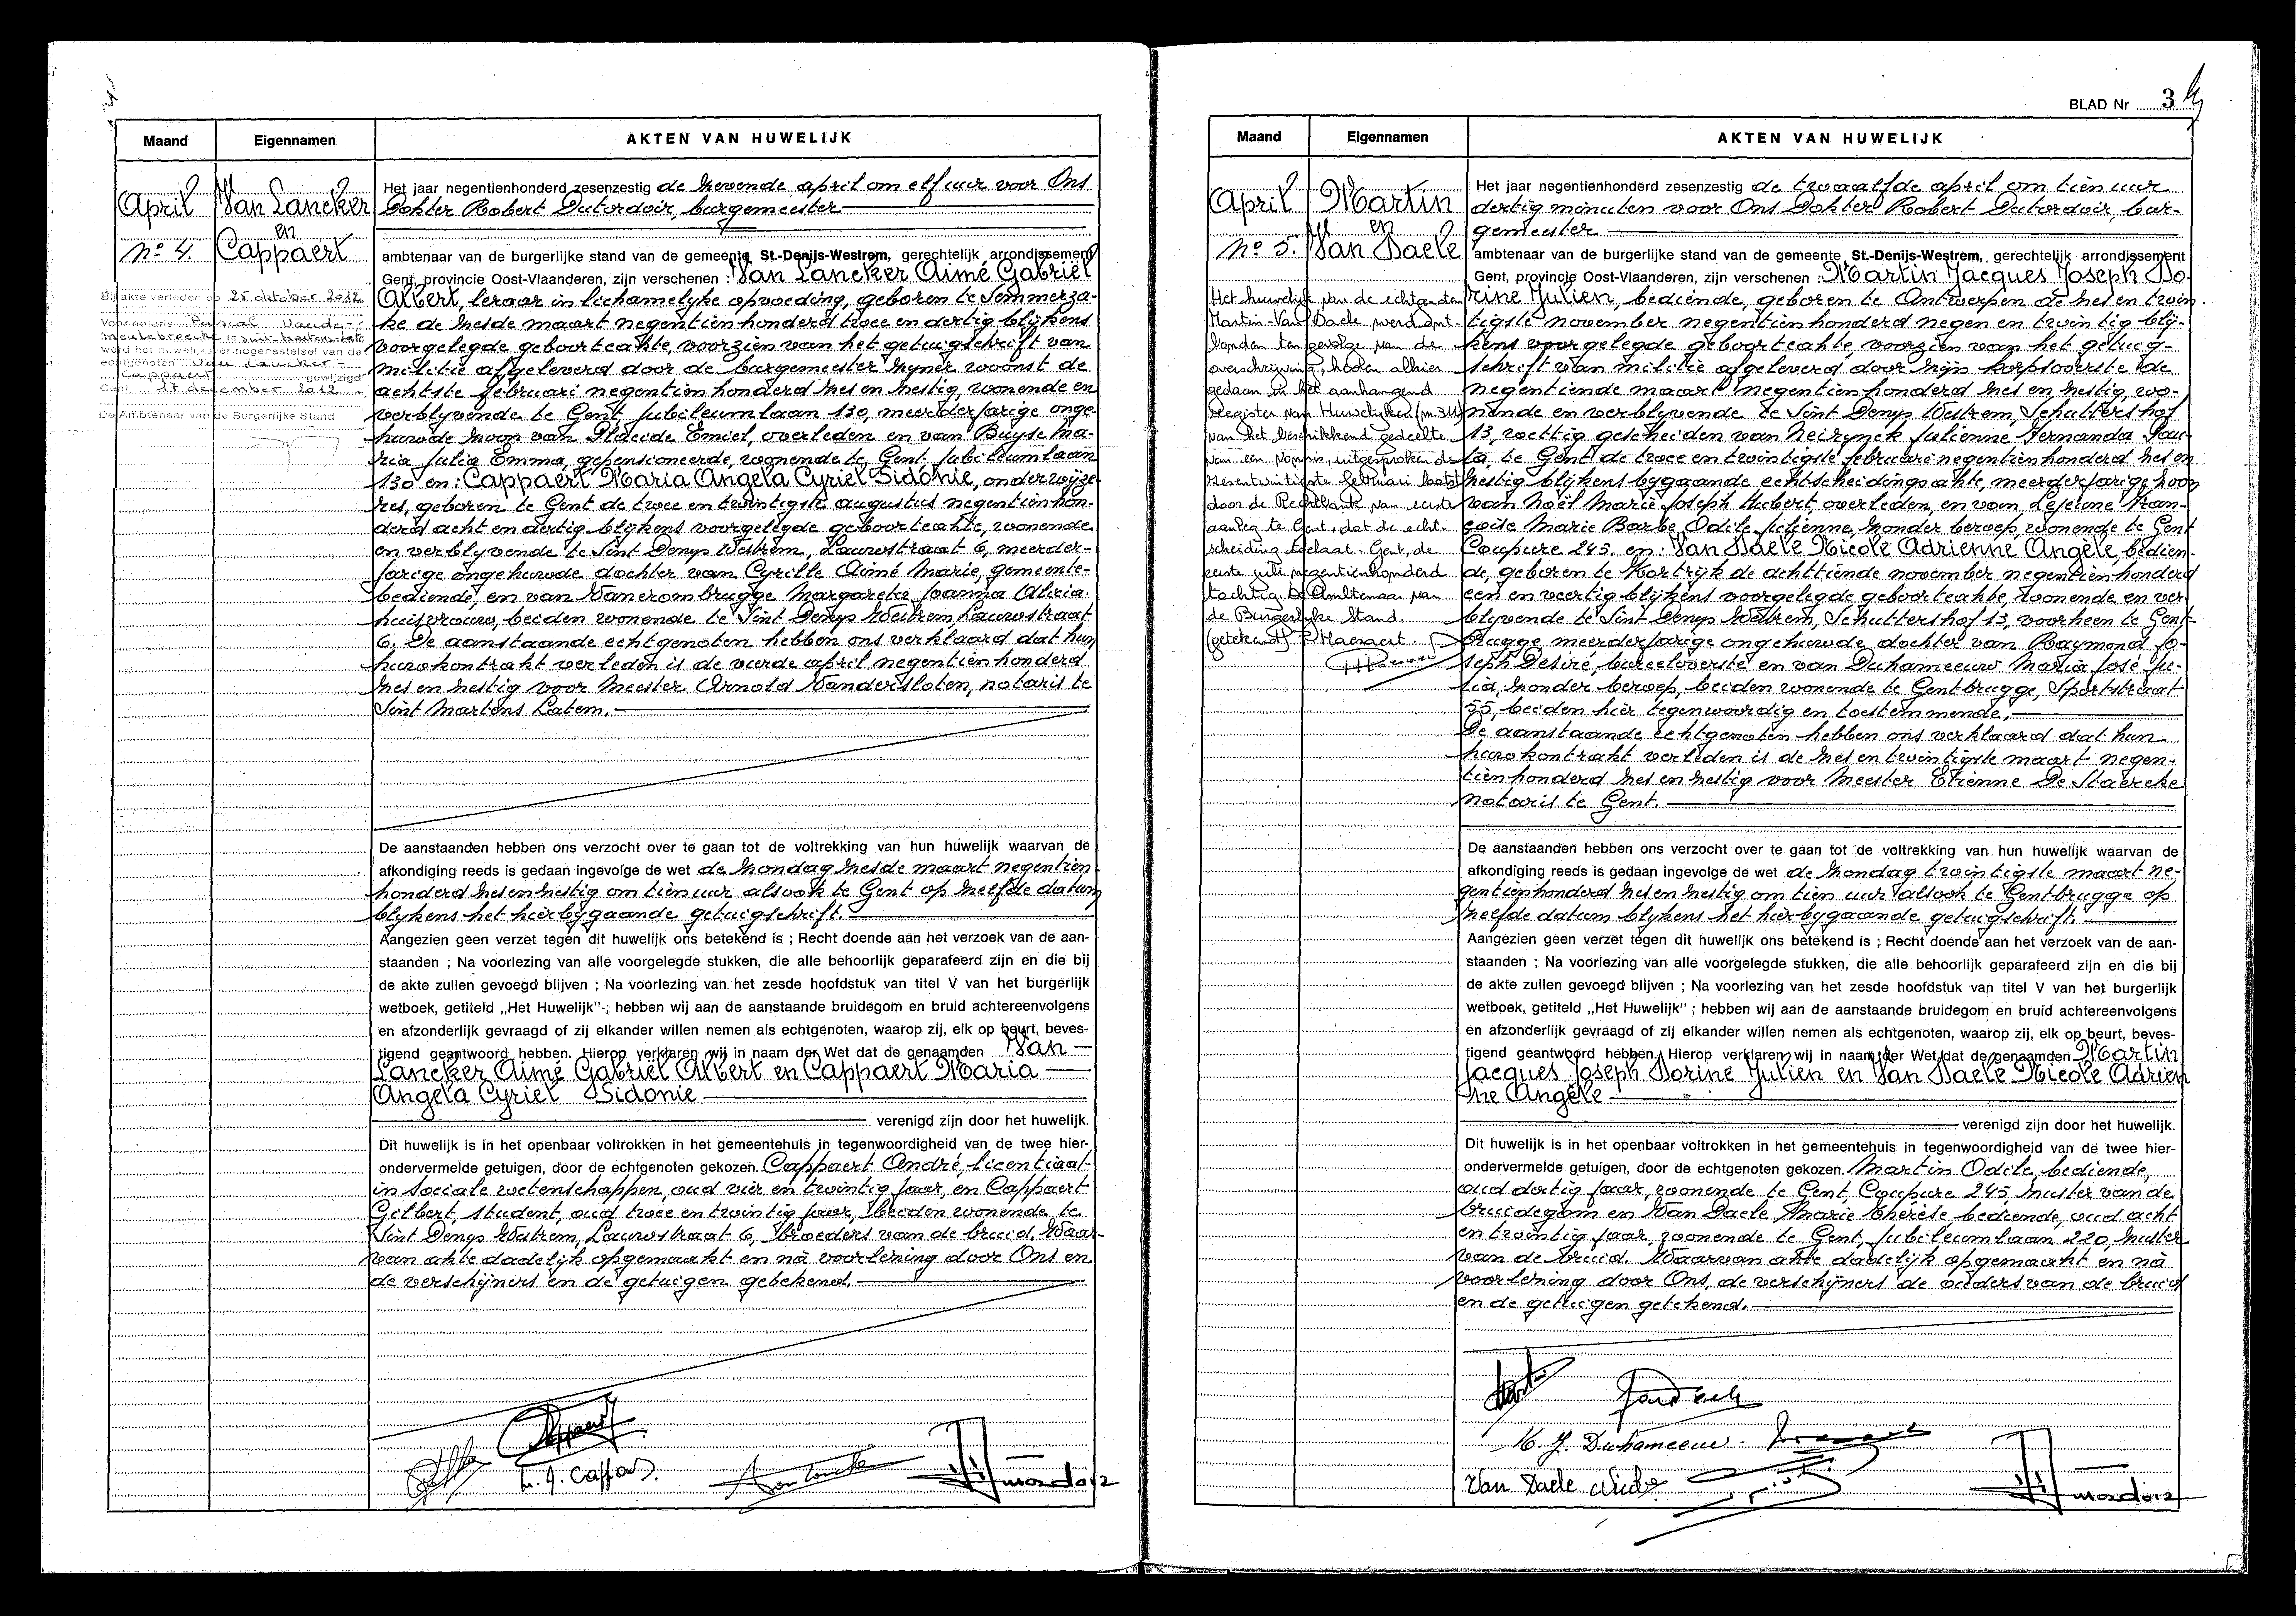 Maand
Eigennamen
AKTEN VAN HUWELIJK
April
Van Lancker
en
Cappaert
No 4.
Bij akte verleden op 25 oktober 2012
Voor notaris Pascal Vande-
meulebroecke te Sint-Martens-Latem
werd het huwelijksvermogensstelsel van de
echtgenoten Van Lancker -
Cappaert gewijzigd
Gent, 17 december 2012
De Ambtenaar van de Burgerlijke Stand
Het jaar negentienhonderd zesenzestig de zevende april om elf uur voor Ons
Dokter Robert Dutordoir, burgemeester
ambtenaar van de burgerlijke stand van de gemeente St.-Denijs-Westrem, gerechtelijk arrondissement
Gent, provincie Oost-Vlaanderen, zijn verschenen : Van Lancker Aimé Gabriël
Albert, leraar in lichamelyke opvoeding, geboren te Sommerza-
ke de zesde maart negentien honderd twee en dertig blijkens
voorgelegde geboorteakte, voorzien van het getuigschrift van
militie afgeleverd door de burgemeester zyner woonst de
achtste februari negentien honderd zes en zestig, wonende en
verblyvende te Gent Jubileumlaan 130, meerderjarige onge-
huwde zoon van Placide Emiel, overleden en van Buyse Ma-
ria Julia Emma, gepensioneerde, wonende te Gent Jubileumlaan
130 en: Cappaert Maria Angela Cyriel Sidonie, onderwijze-
res, geboren te Gent de twee en twintigste augustus negentien hon-
derd acht en dertig blijkens voorgelegde geboorteakte, wonende
en verblyvende te Sint Denys Westrem, Lauwstraat 6, meerder-
jarige ongehuwde dochter van Cyrille Aimé Marie, gemeente-
bediende, en van Vanerombrugge Margareta Joanna Alicia.
huisvrouw, beiden wonende te Sint Denys Westrem Lauwstraat
6. De aanstaande echtgenoten hebben ons verklaard dat hun
huwkontrakt verleden is de vierde april negentien honderd
zes en zestig voor Meester Arnold Vandersloten, notaris te
Sint Martens Latem.
De aanstaanden hebben ons verzocht over te gaan tot de voltrekking van hun huwelijk waarvan de
afkondiging reeds is gedaan ingevolge de wet de zondag zesde maart negentien
honderd zes en zestig om tien uur alsook te Gent op zelfde datum
blykens het hierbygaande getuigschrift.
Aangezien geen verzet tegen dit huwelijk ons betekend is ; Recht doende aan het verzoek van de aan-
staanden ; Na voorlezing van alle voorgelegde stukken, die alle behoorlijk geparafeerd zijn en die bij
de akte zullen gevoegd blijven ; Na voorlezing van het zesde hoofdstuk van titel V van het burgerlijk
wetboek, getiteld „Het Huwelijk"; hebben wij aan de aanstaande bruidegom en bruid achtereenvolgens
en afzonderlijk gevraagd of zij elkander willen nemen als echtgenoten, waarop zij, elk op beurt, beves-
tigend geantwoord hebben. Hierop verklaren wij in naam der Wet dat de genaamden Van
Lancker Aimé Gabriël Albert en Cappaert Maria
Angela Cyriel Sidonie
verenigd zijn door het huwelijk.
Dit huwelijk is in het openbaar voltrokken in het gemeentehuis in tegenwoordigheid van de twee hier-
ondervermelde getuigen, door de echtgenoten gekozen. Cappaert André, licentiaat
in sociale wetenschappen, oud vier en twintig jaar, en Cappaert
Gilbert, student, oud twee en twintig jaar, beiden wonende te
Sint Denys Westrem, Lauwstraat 6, broeders van de bruid. Waar-
van akte dadelijk opgemaakt en nà voorlezing door Ons en
de verschijners en de getuigen getekend.
BLAD Nr 3
Maand
Eigennamen
AKTEN VAN HUWELIJK
April
Martin
en
Van Daele
No 5.
Het huwelijk van de echtgenoten
Martin-Van Daele werd ont-
bonden ten gevolge van de
overschrijving, heden alhier
gedaan in het aanhangend
Register van Huwelijken (nr 311)
van het beschikkend gedeelte
van een vonnis, uitgesproken de
zesentwintigste februari laatst
door de Rechtbank van eerste
aanleg te Gent, dat de echt-
scheiding toelaat. Gent, de
eerste juli negentienhonderd
tachtig. De Ambtenaar van
de Burgerlijke Stand.
(getekend) F. Haenaert.
Het jaar negentienhonderd zesenzestig de twaalfde april om tien uur
dertig minuten voor Ons Dokter Robert Dutordoir, bur-
gemeester
ambtenaar van de burgerlijke stand van de gemeente St.-Denijs-Westrem, gerechtelijk arrondissement
Gent, provincie Oost-Vlaanderen, zijn verschenen : Martin Jacques Joseph Do-
rine Julien, bediende, geboren te Antwerpen de zes en twin-
tigste november negentien honderd negen en twintig bly-
kens voorgelegde geboorteakte, voorzien van het getuig-
schrift van militie afgeleverd door zijn korpsoverste de
negentiende maart negentien honderd zes en zestig, wo-
nende en verblyvende te Sint Denys Westrem, Schuttershof
13, wettig gescheiden van Neirynck Julienne Fernanda Pau-
la, te Gent de twee en twintigste februari negentien honderd zes en
zestig blijkens bygaande echtscheidingsakte, meerderjarige zoon
van Noël Marie Joseph Hubert, overleden, en van Lejeune Fran-
çoise Marie Barbe Odile Julienne, zonder beroep, wonende te Gent
Coupure 245. en: Van Daele Nicole Adrienne Angèle, bedien-
de, geboren te Kortrijk de achttiende november negentien honderd
een en veertig blijkens voorgelegde geboorteakte, wonende en ver-
blyvende te Sint Denys Westrem, Schuttershof 13, voorheen te Gent-
brugge meerderjarige ongehuwde dochter van Raymond Jo-
seph Desiré, bureeloverste en van Duhameeuw Maria José Ju-
lia, zonder beroep, beiden wonende te Gentbrugge, Sportstraat
55, beiden hier tegenwoordig en toestemmende.
De aanstaande echtgenoten hebben ons verklaard dat hun
huwkontrakt verleden is de zes en twintigste maart negen-
tien honderd zes en zestig voor Meester Etienne De Staercke
notaris te Gent.
De aanstaanden hebben ons verzocht over te gaan tot de voltrekking van hun huwelijk waarvan de
afkondiging reeds is gedaan ingevolge de wet de zondag twintigste maart ne-
gentienhonderd zes en zestig om tien uur alsook te Gentbrugge op
zelfde datum blykens het hierbygaande getuigschrift.
Aangezien geen verzet tegen dit huwelijk ons betekend is ; Recht doende aan het verzoek van de aan-
staanden ; Na voorlezing van alle voorgelegde stukken, die alle behoorlijk geparafeerd zijn en die bij
de akte zullen gevoegd blijven ; Na voorlezing van het zesde hoofdstuk van titel V van het burgerlijk
wetboek, getiteld „Het Huwelijk" ; hebben wij aan de aanstaande bruidegom en bruid achtereenvolgens
en afzonderlijk gevraagd of zij elkander willen nemen als echtgenoten, waarop zij, elk op beurt, beves-
tigend geantwoord hebben. Hierop verklaren wij in naam der Wet dat de genaamden Martin
Jacques Joseph Dorine Julien en Van Daele Nicole Adrien
ne Angèle
verenigd zijn door het huwelijk.
Dit huwelijk is in het openbaar voltrokken in het gemeentehuis in tegenwoordigheid van de twee hier-
ondervermelde getuigen, door de echtgenoten gekozen. Martin Odile, bediende,
oud dertig jaar, wonende te Gent, Coupure 245, zuster van de
bruidegom en Van Daele Marie Thérèse, bediende, oud acht
en twintig jaar, wonende te Gent, Jubileumlaan 220, zuster
van de bruid. Waarvan akte dadelijk opgemaakt en nà
voorlezing door Ons, de verschijners de ouders van de bruid
en de getuigen getekend.
M. J. Duhameeuw.
Van Daele